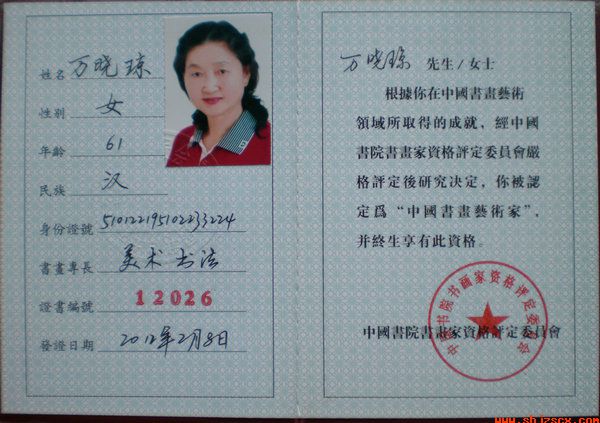 姓名 万晓琼
性别 女
年齡 61
民族 汉
身份證號 510122195102233224
書畫專長 美术 书法
證書編號 12026
發證日期 2012年2月8日
万晓琼 先生/女士
根據你在中國書畫藝術
領域所取得的成就，經中國
書院書畫家資格評定委員會嚴
格評定後研究决定，你被認
定爲“中國書畫藝術家”，
并終生享有此資格。
中国书院书画家资格评定委员会
中國書院書畫家資格評定委員會
www.sbjzscx.com